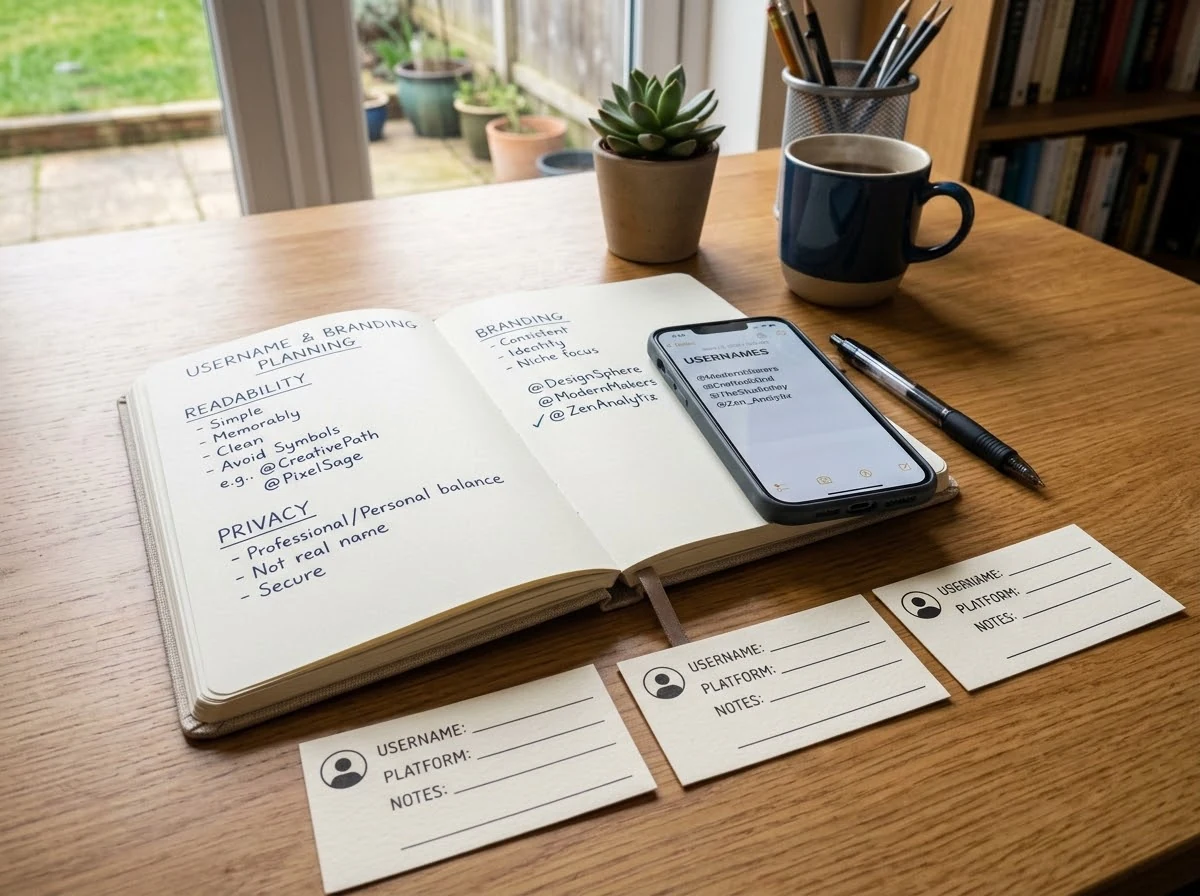 USERNAME & BRANDING
PLANNING
READABILITY
- Simple
- Memorably
- Clean
- Avoid Symbols
e.g.. @CreativePath
@PixelSage
PRIVACY
- Professional/Personal balance
- Not real name
- Secure
BRANDING
- Consistent
- Identity
- Niche focus
@DesignSphere
@ModernMakers
✓ @ZenAnalytix
USERNAMES
USERNAME:
PLATFORM:
NOTES:
USERNAME:
PLATFORM:
NOTES:
USERNAME:
PLATFORM:
NOTES: